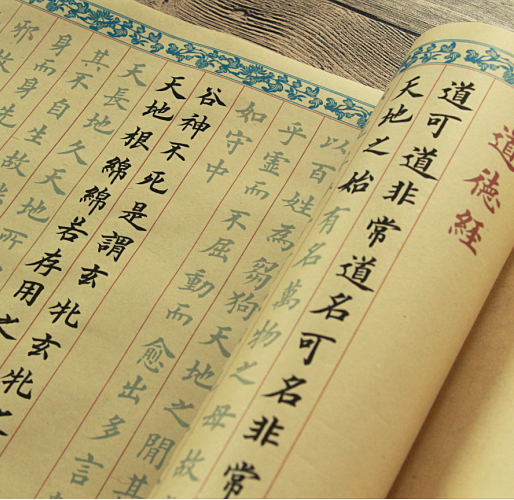 道德經
道可道非常道名可名非常
天地之始有名萬物之母故
以百姓為芻狗天地之閒其
乎靈而不屈動而愈出多言
如守中
谷神不死是謂玄牝玄牝之
天地根綿綿若存用之
天長地久天地所
其不自生故
身而身先
邪故